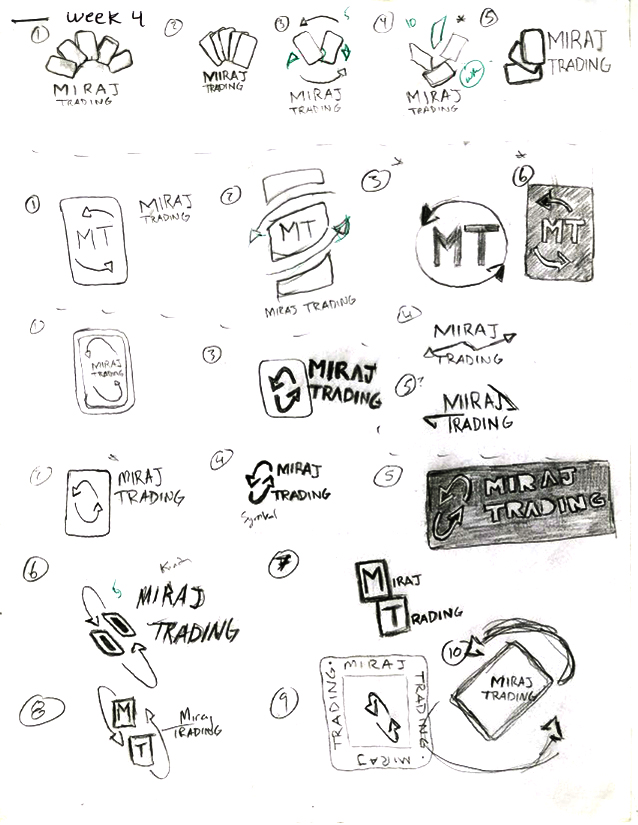 week 4
1
2
3
5
4
10
*
5
MIRAJ
TRADING
MIRAJ
TRADING
MIRAJ
TRADING
MIRAJ
TRADING
MIRAJ
TRADING
1
MT
MIRAJ
TRADING
2
MT
MIRAJ TRADING
3
*
MT
6
*
MT
1
MIRAJ
TRADING
3
MIRAJ
TRADING
4
MIRAJ
TRADING
5?
MIRAJ
TRADING
*
MIRAJ
TRADING
4
MIRAJ
TRADING
Symbol
5
MIRAJ
TRADING
6
MIRAJ
TRADING
7
MIRAJ
TRADING
8
M
T
Miraj
TRADING
9
MIRAJ
TRADING
MIRAJ
TRADING
10
MIRAJ
TRADING